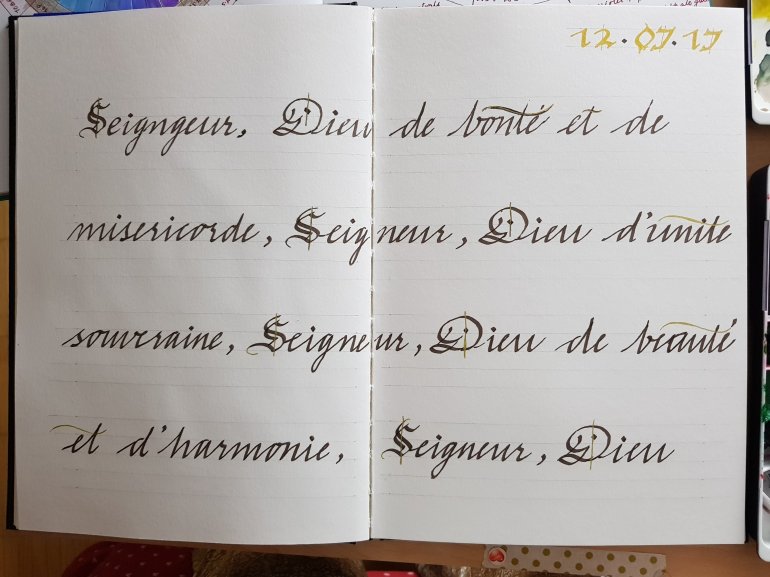 12.07.17
Seigngeur, Dieu de bonté et de
misericorde, Seigneur, Dieu d'unite
souveraine, Seigneur, Dieu de beauté
et d'harmonie, Seigneur, Dieu